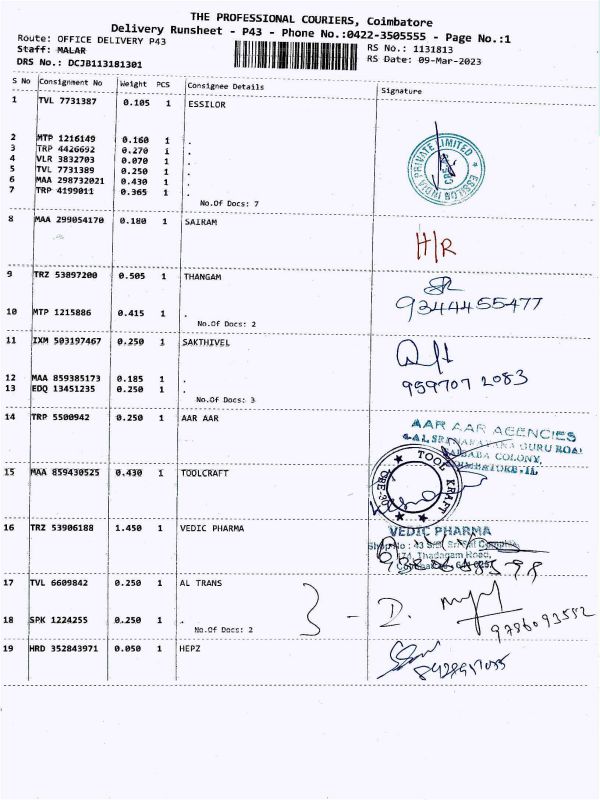 THE PROFESSIONAL COURIERS, Coimbatore
Delivery Runsheet - P43 - Phone No.:0422-3505555 - Page No.:1
Route: OFFICE DELIVERY P43 RS No.: 1131813
Staff: MALAR RS Date: 09-Mar-2023
DRS No.: DCJB113181301
S No Consignment No Weight PCS Consignee Details Signature
1 TVL 7731387 0.105 1 ESSILOR
2 MTP 1216149 0.160 1 .
3 TRP 4426692 0.270 1 .
4 VLR 3832703 0.070 1 .
5 TVL 7731389 0.250 1 .
6 MAA 298732021 0.430 1 .
7 TRP 4199011 0.365 1 .
No.Of Docs: 7
ESSILOR INDIA PRIVATE LIMITED
8 MAA 299054170 0.180 1 SAIRAM
H/R
9 TRZ 53897200 0.505 1 THANGAM
9344455477
10 MTP 1215886 0.415 1 .
No.Of Docs: 2
11 IXM 503197467 0.250 1 SAKTHIVEL
12 MAA 859385173 0.185 1 .
13 EDQ 13451235 0.250 1 .
959707 2083
No.Of Docs: 3
14 TRP 5500942 0.250 1 AAR AAR
AAR AAR AGENCIES
GURU ROAD
COLONY,
15 MAA 859430525 0.430 1 TOOLCRAFT
TOOL KRAFT
16 TRZ 53906188 1.450 1 VEDIC PHARMA
VEDIC PHARMA
Thadagam Road,
17 TVL 6609842 0.250 1 AL TRANS
18 SPK 1224255 0.250 1 .
No.Of Docs: 2
9786093552
19 HRD 352843971 0.050 1 HEPZ